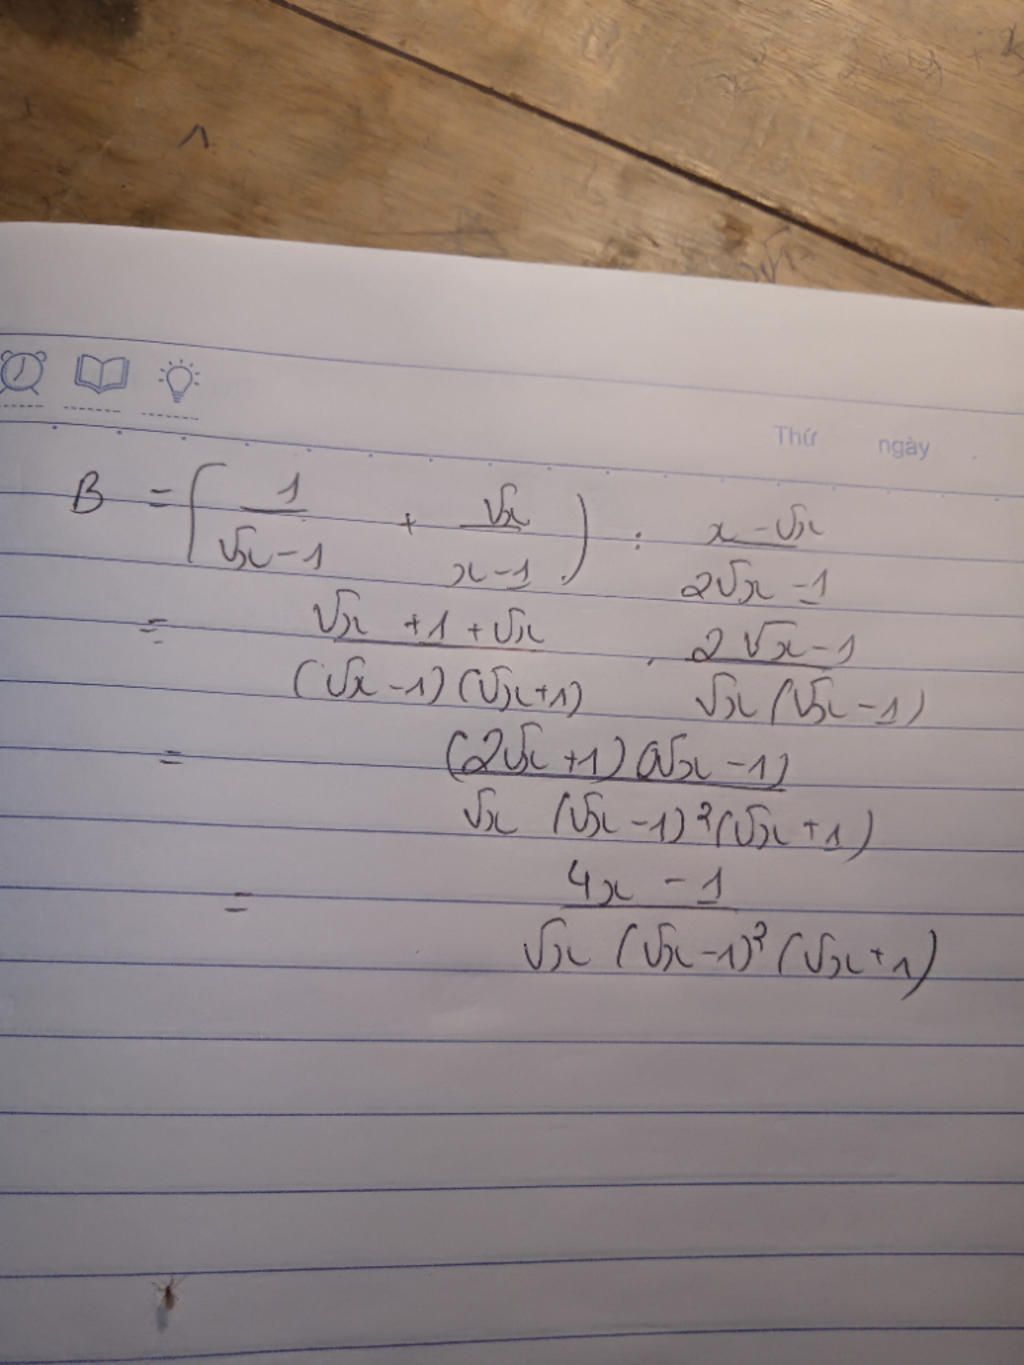 Thứ ngày
B = (1/(√x − 1) + √x/(x − 1)) : (x − √x)/(2√x − 1)
= (√x + 1 + √x)/((√x − 1)(√x + 1)) . (2√x − 1)/(√x(√x − 1))
= ((2√x + 1)(2√x − 1))/(√x (√x − 1)²(√x + 1))
= (4x − 1)/(√x (√x − 1)²(√x + 1))